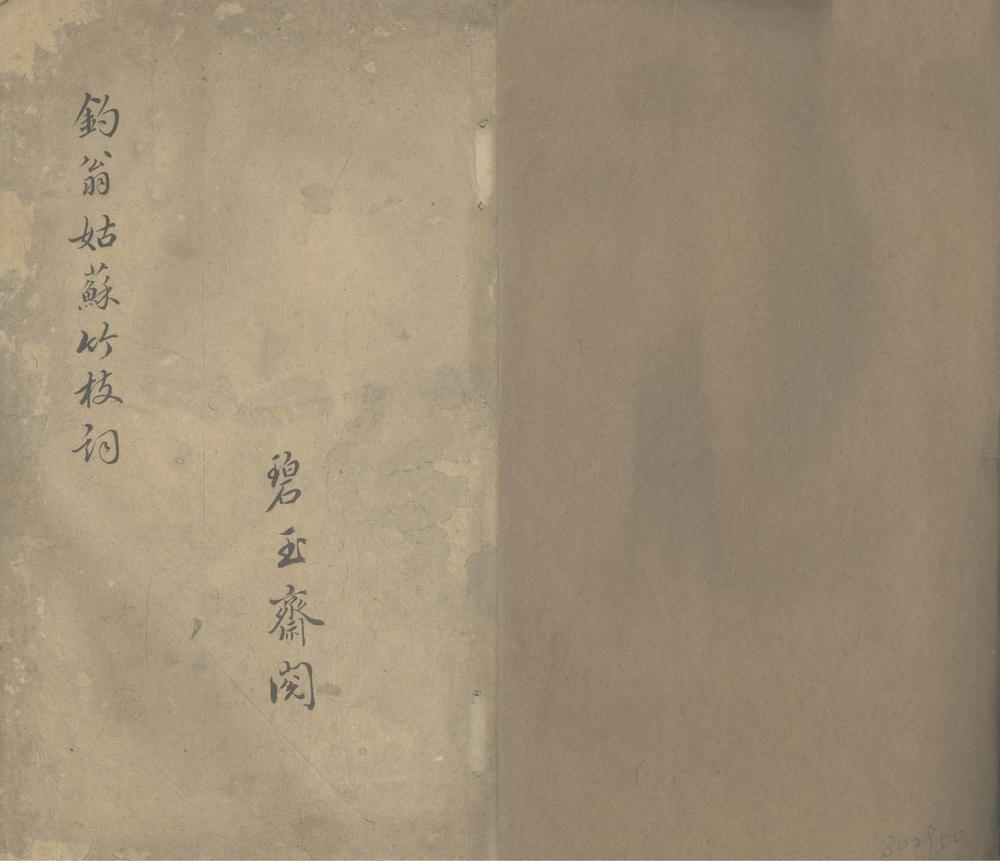 釣翁姑蘇竹枝詞
碧玉齋閱
802950